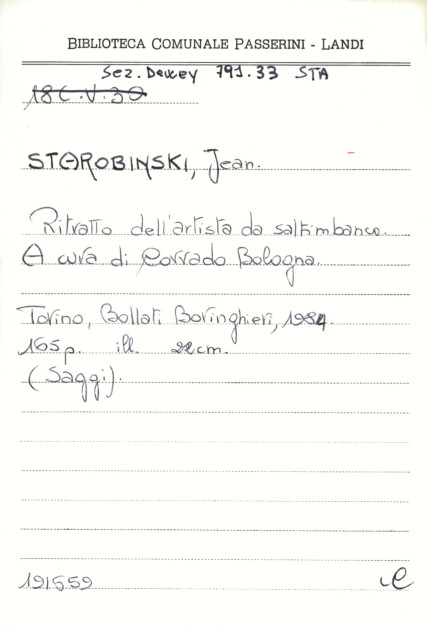 BIBLIOTECA COMUNALE PASSERINI - LANDI
Sez. Dewey 791.33 STA
18C.V.30
STAROBINSKI, Jean.
Ritratto dell'artista da saltimbanco.
A cura di Corrado Bologna.
Torino, Bollati Boringhieri, 1984.
165 p. ill. 22 cm.
(Saggi).
191559